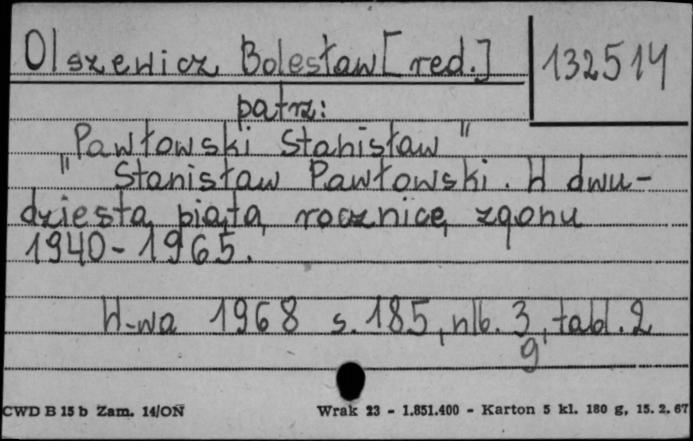 Olszewicz Bolesław [red.] 132514
patrz:
"Pawłowski Stanisław"
"Stanisław Pawłowski. W dwu-
dziestą piątą rocznicę zgonu
1940-1965.
W-wa 1968 s. 185, nlb. 3, tabl. 2
9
CWD B 15 b Zam. 14/ON Wrak 23 - 1.851.400 - Karton 5 kl. 180 g, 15. 2. 67